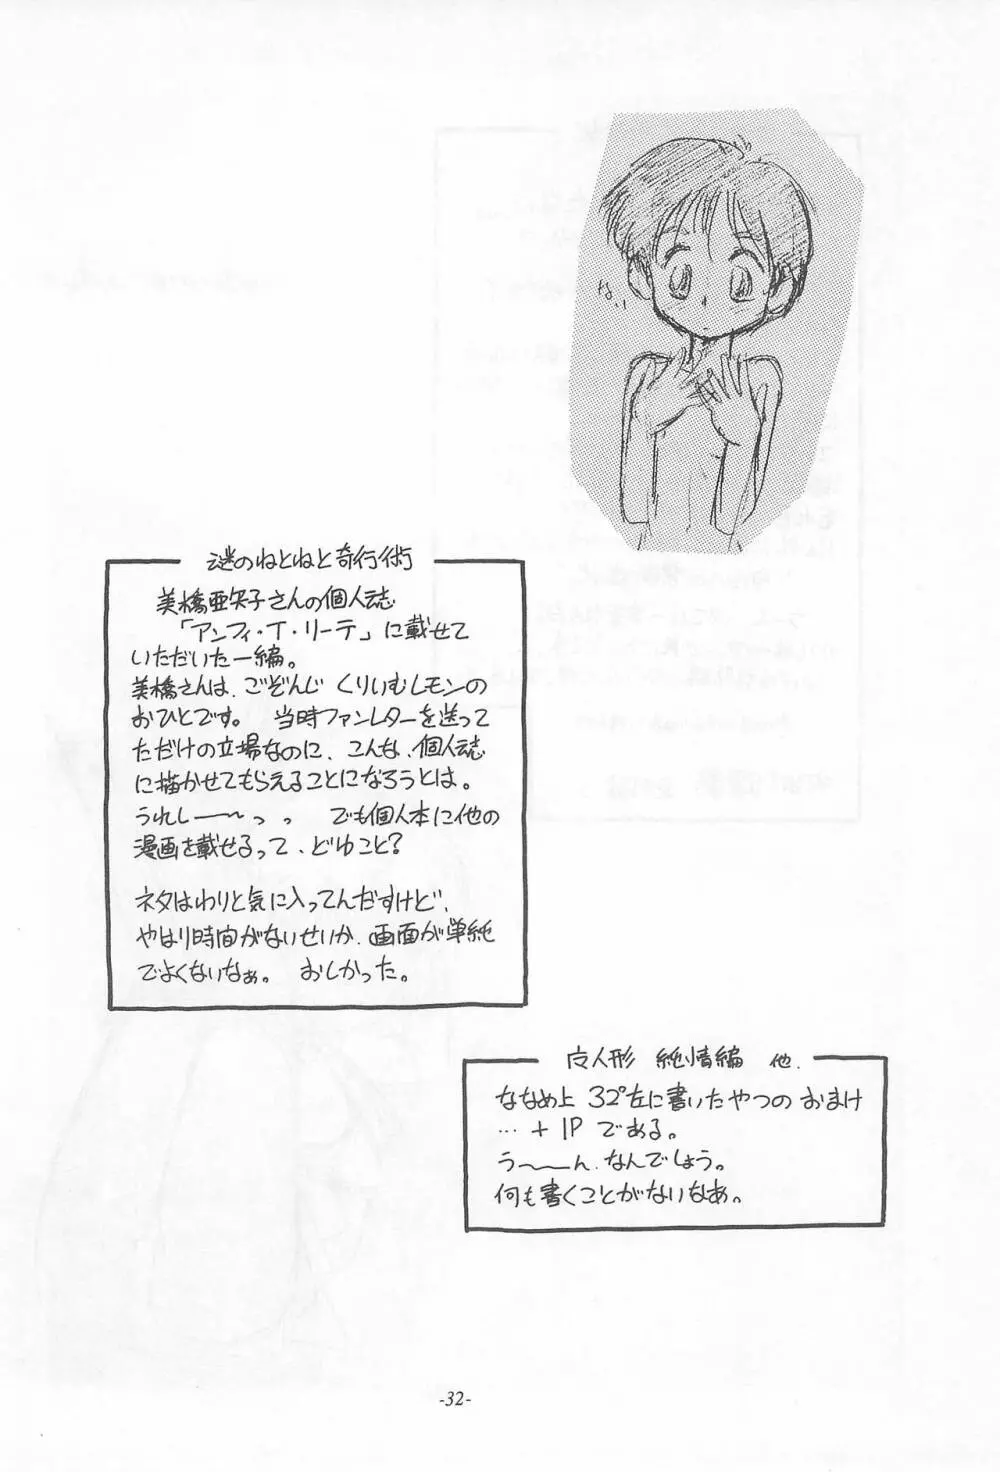 な、、
謎のねとねと奇行術
美橋亜矢子さんの個人誌
「アンフィ・T・リーテ」に載せて
いただいた一編。
美橋さんは、ごぞんじ くりいむレモンの
おひとです。 当時ファンレターを送って
ただけの立場なのに、こんな、個人誌
に描かせてもらえることになろうとは。
うれしー～っっ でも個人本に他の
漫画を載せるって、どゆこと?
ネタはわりと気に入ってんだすけど、
やはり時間がないせいか、画面が単純
でよくないなぁ。 おしかった。
人形 純情編 他.
ななめ上 32P左に書いたやつの おまけ
…＋1P である。
う～ーん、なんでしょう。
何も書くことがないなあ。
-32-